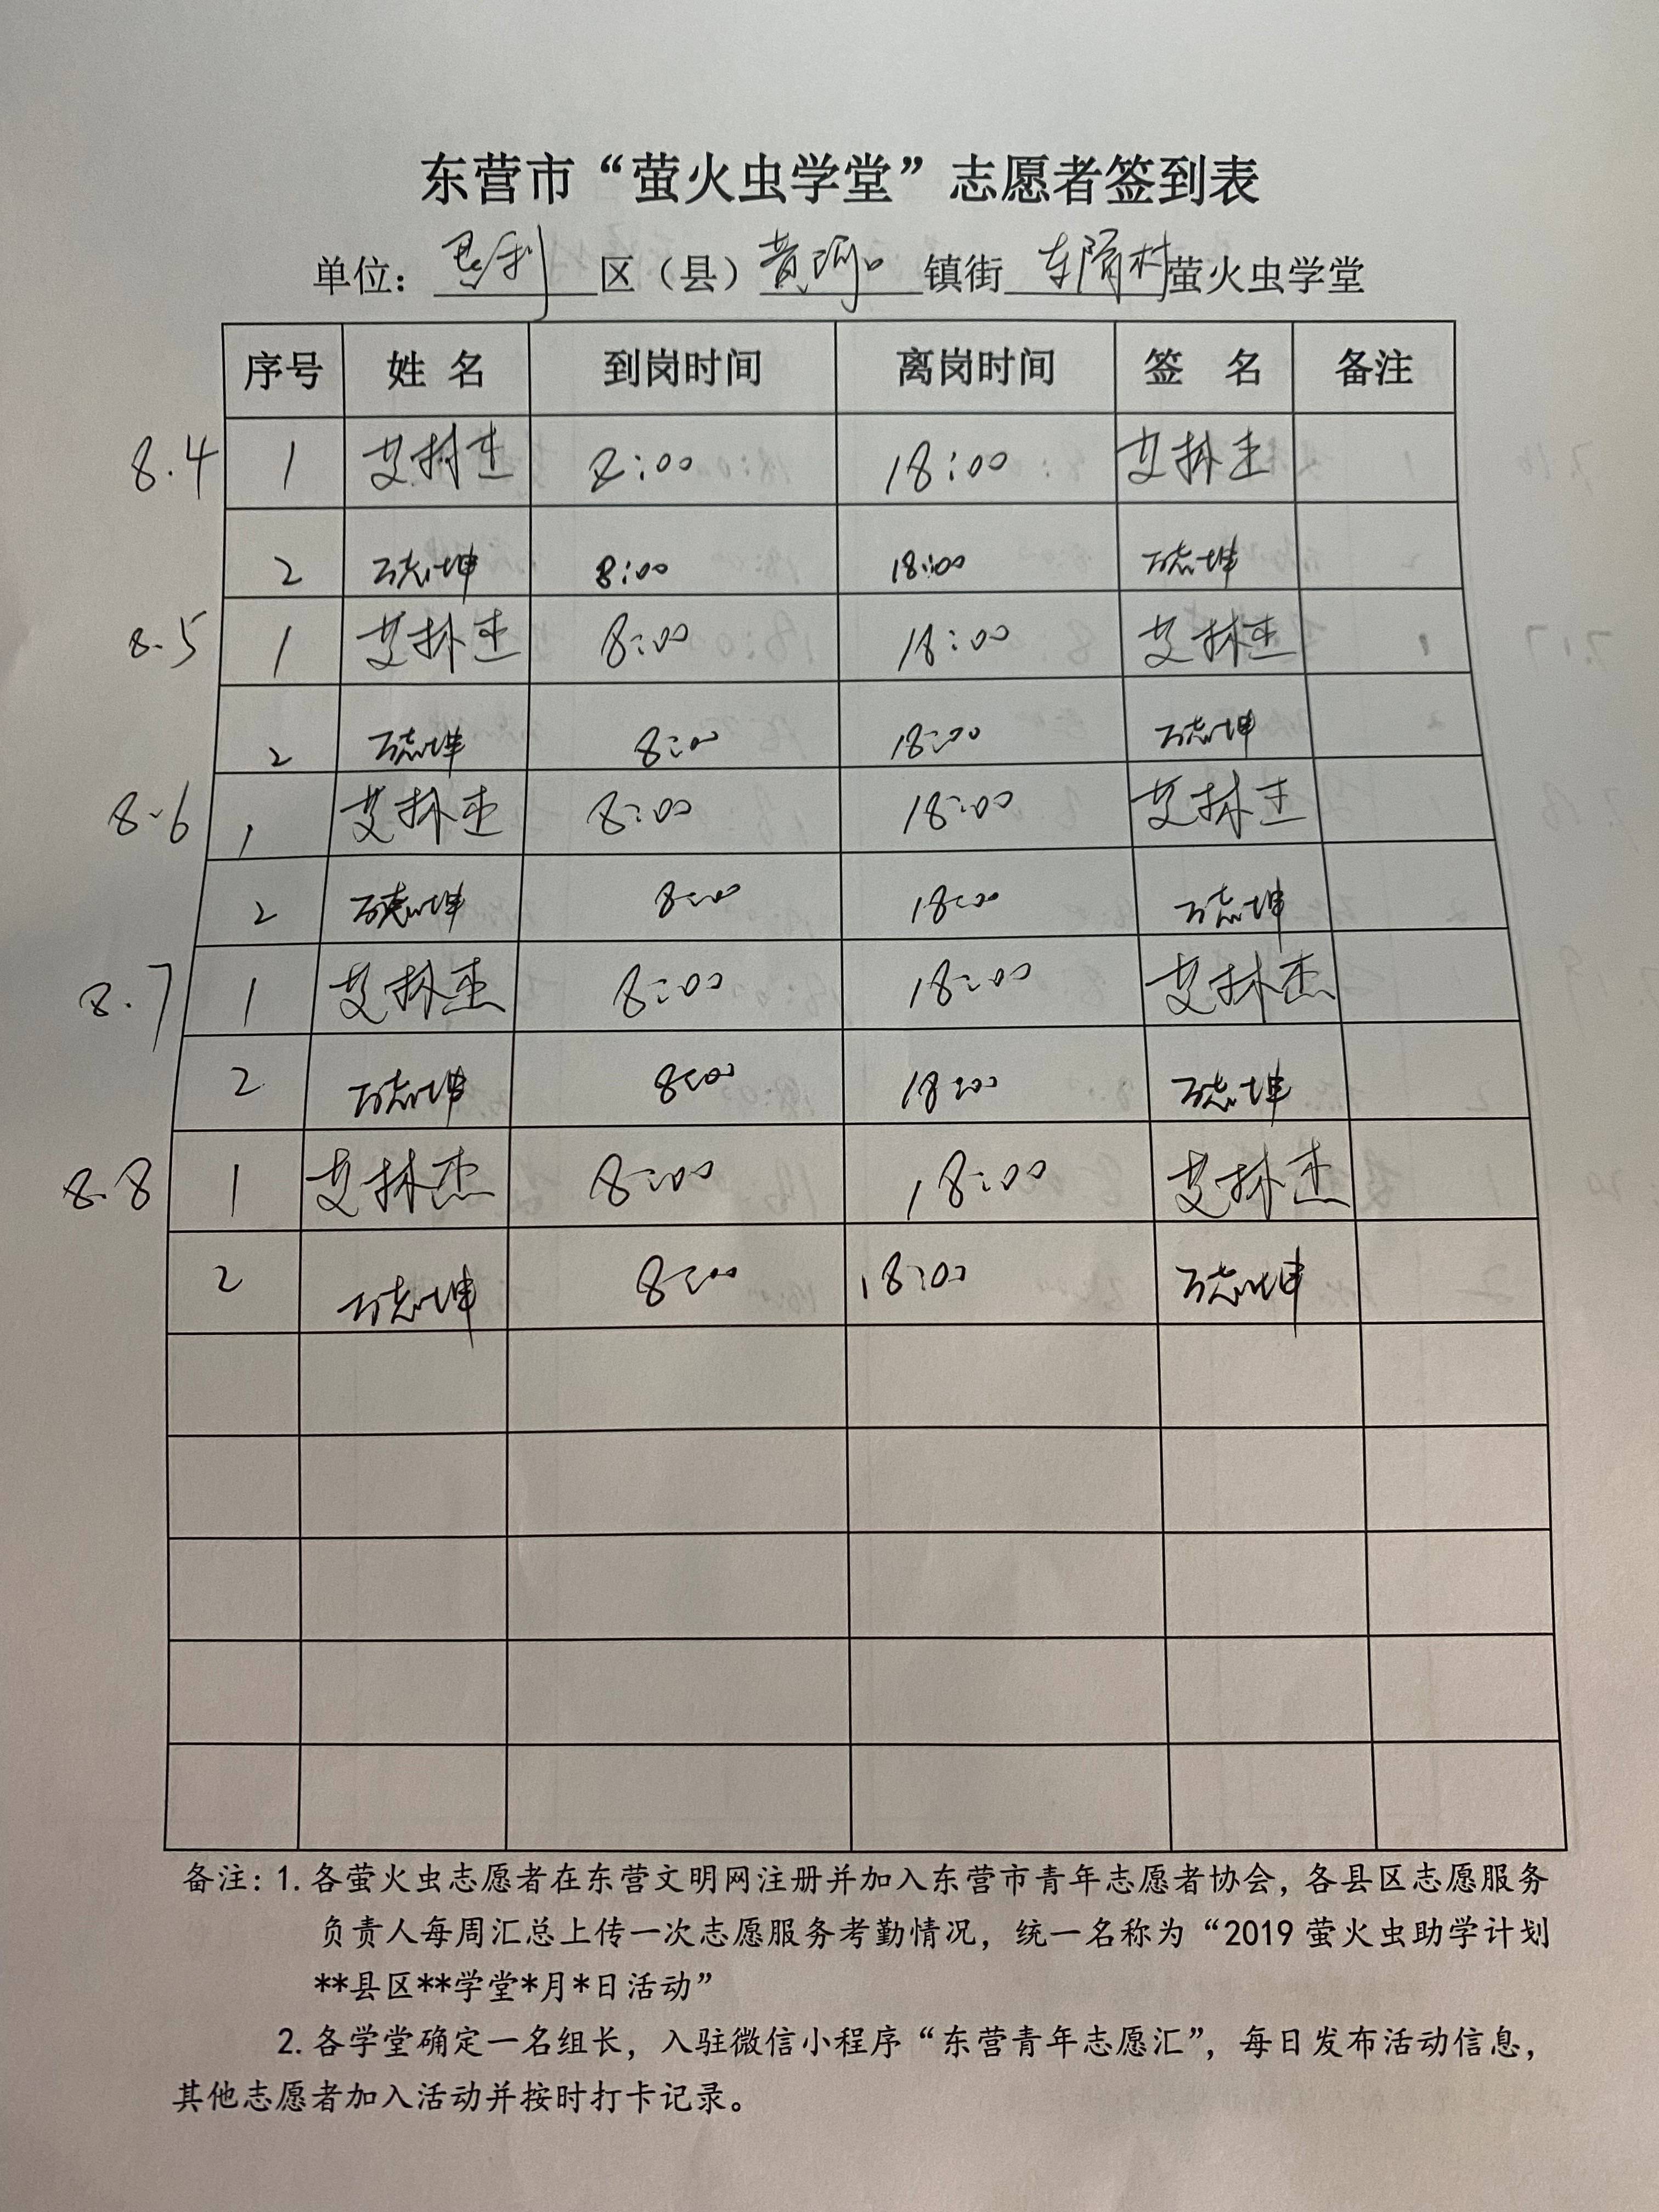 东营市“萤火虫学堂”志愿者签到表
单位：垦利区（县）黄河口镇街东隋村萤火虫学堂
序号 姓名 到岗时间 离岗时间 签名 备注
8.4 1 艾林杰 8:00 18:00 艾林杰
2 万志坤 8:00 18:00 万志坤
8.5 1 艾林杰 8:00 18:00 艾林杰
2 万志坤 8:00 18:00 万志坤
8.6 1 艾林杰 8:00 18:00 艾林杰
2 万志坤 8:00 18:00 万志坤
8.7 1 艾林杰 8:00 18:00 艾林杰
2 万志坤 8:00 18:00 万志坤
8.8 1 艾林杰 8:00 18:00 艾林杰
2 万志坤 8:00 18:00 万志坤
备注：1.各萤火虫志愿者在东营文明网注册并加入东营市青年志愿者协会，各县区志愿服务
负责人每周汇总上传一次志愿服务考勤情况，统一名称为“2019 萤火虫助学计划
**县区**学堂*月*日活动”
2.各学堂确定一名组长，入驻微信小程序“东营青年志愿汇”，每日发布活动信息，
其他志愿者加入活动并按时打卡记录。